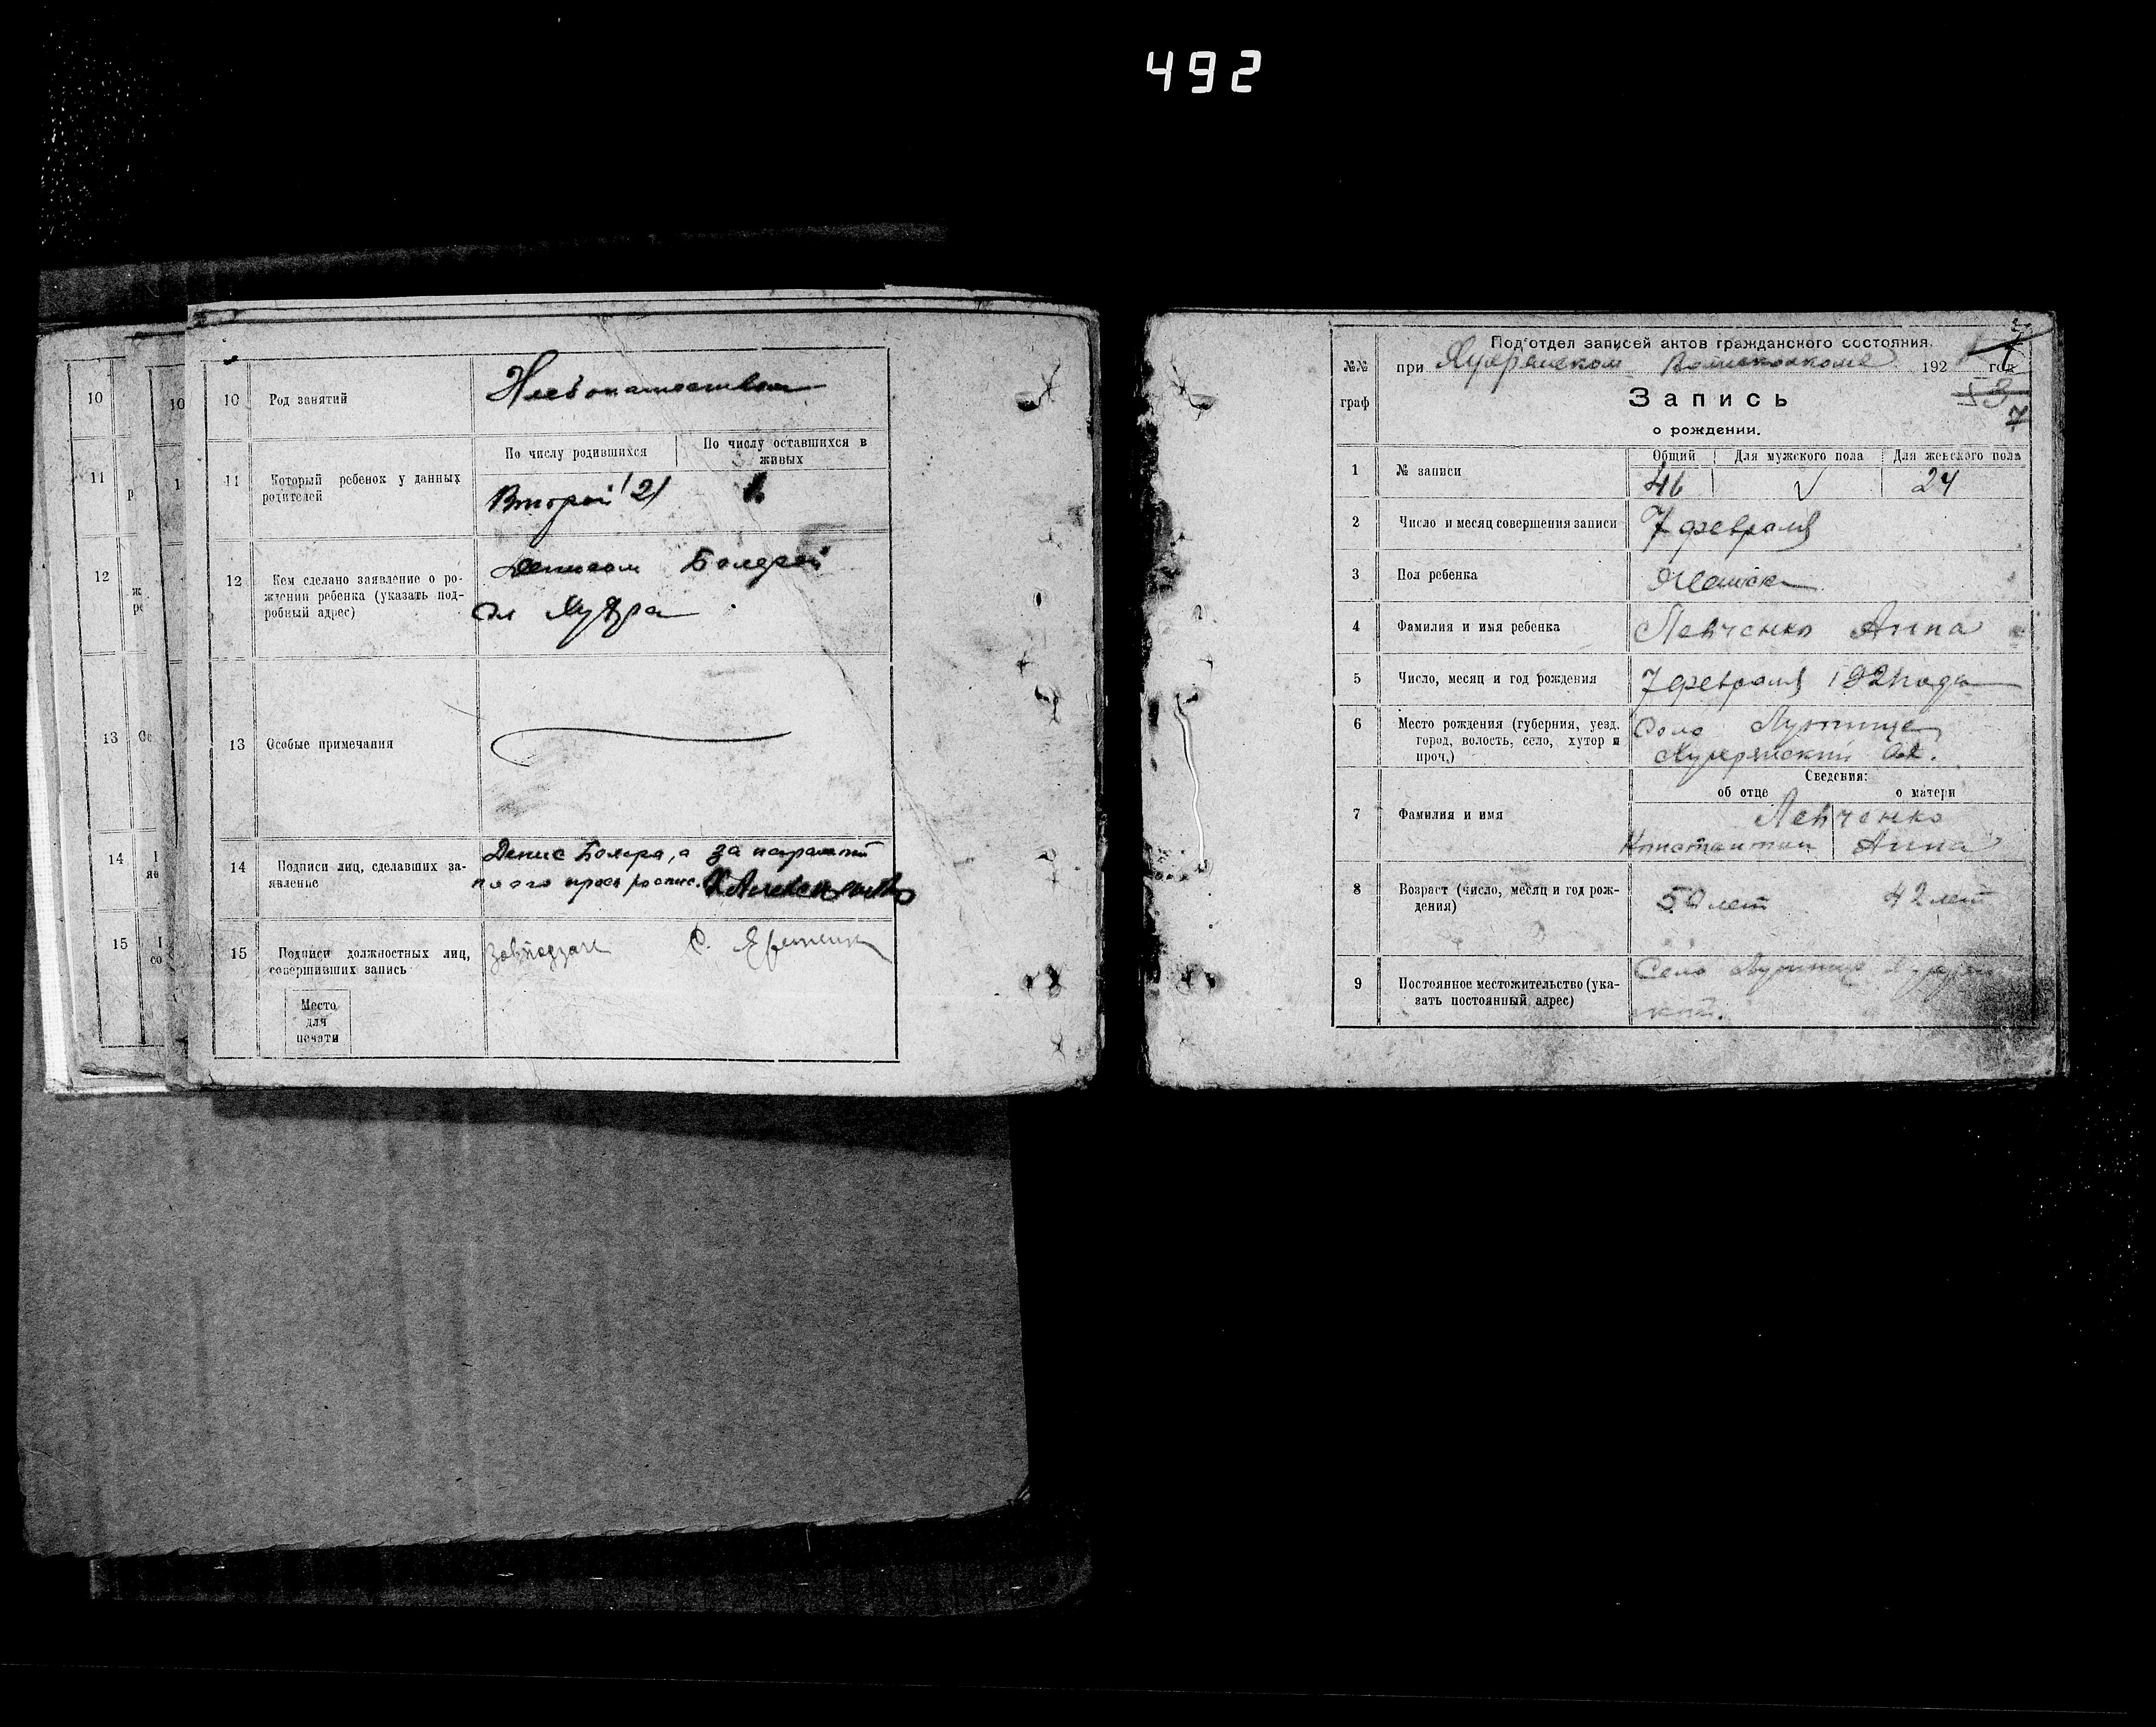 492
10
11
12
13
14
15
10
Род занятий
Хлебопашеством
11
Который ребенок у данных
родителей
По числу родившихся
По числу оставшихся в
живых
Второй /2/
1.
12
Кем сделано заявление о ро-
ждении ребенка (указать под-
робный адрес)
Денисом Болерой
13
Особые примечания
14
Подписи лиц, сделавших за-
явление
Денис Болера, а за неграмот
ного
15
Подписи должностных лиц,
совершивших запись
Место
для
печати
Под'отдел записей актов гражданского состояния.
№№
граф
при
192
год
Запись
о рождении.
7
1
№ записи
Общий
Для мужского пола
Для женского пола
46
24
2
Число и месяц совершения записи
7 февраля
3
Пол ребенка
Женска
4
Фамилия и имя ребенка
Левченко Анна
5
Число, месяц и год рождения
7 февраля 1921 года
6
Место рождения (губерния, уезд,
город, волость, село, хутор и
проч.)
Село
Сведения:
об отце
о матери
7
Фамилия и имя
Левченко
Константин
Анна
8
Возраст (число, месяц и год рож-
дения)
50 лет
42 лет
9
Постоянное местожительство (ука-
зать постоянный адрес)
Село